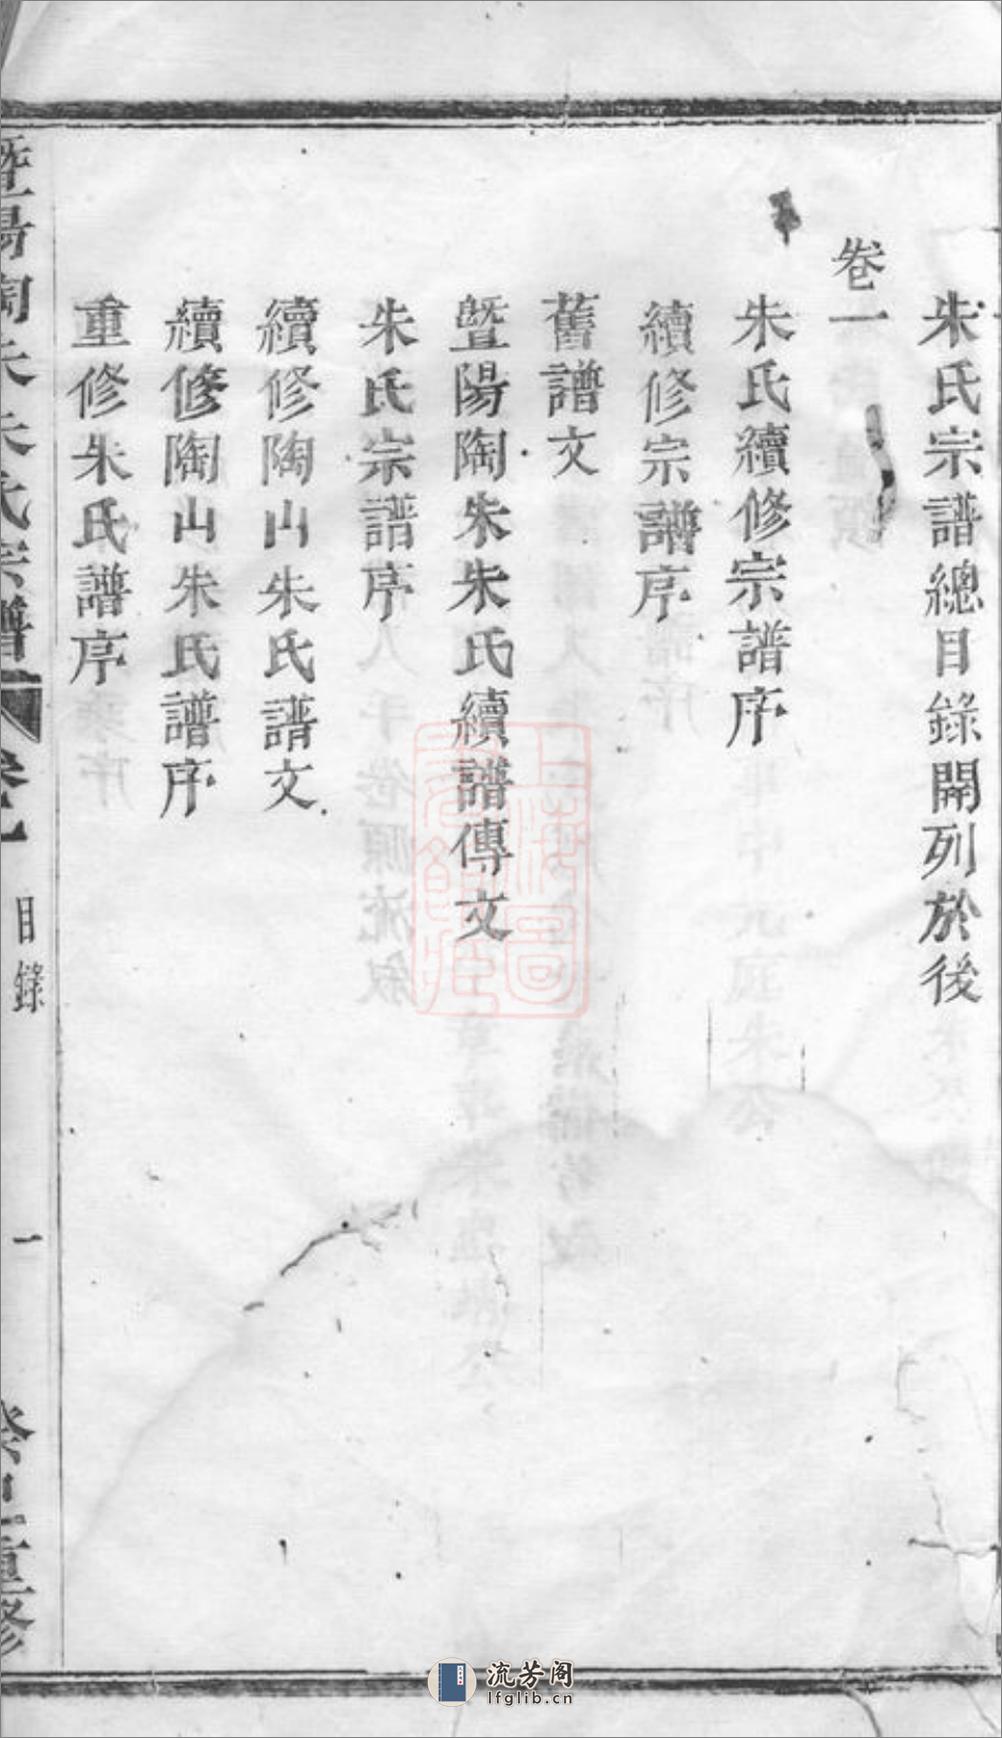 朱氏宗譜總目錄開列於後
卷一
朱氏續修宗譜序
續修宗譜序
舊譜文
暨陽陶朱朱氏續譜傳文
朱氏宗譜序
續修陶山朱氏譜文
續修陶山朱氏譜序
重修朱氏譜序
暨陽陶朱朱氏宗譜
卷一
目錄
一
重修
流芳阁
lfglib.cn